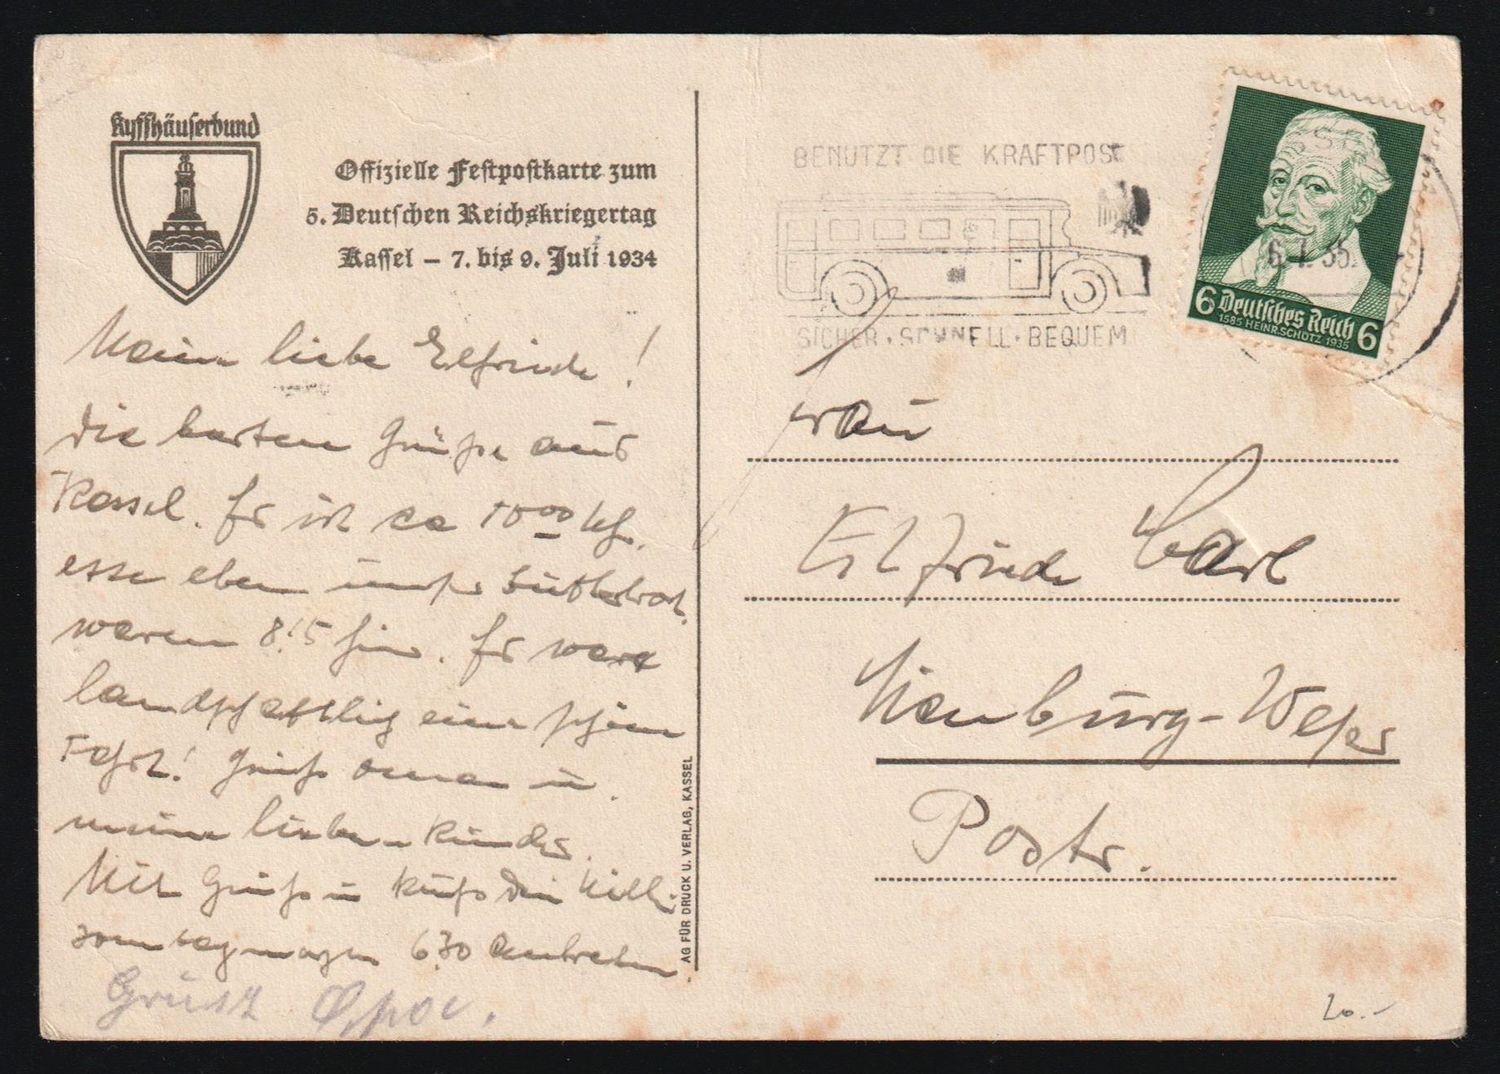 Kyffhäuserbund
Offizielle Festpostkarte zum
5. Deutschen Reichskriegertag
Kassel – 7. bis 9. Juli 1934
Meine liebe Elfriede!
Die besten Grüße aus
Kassel. Es ist ca
esse eben unser Butterbrot,
waren 8.15 hier. Es war
landschaftlich eine schöne
Fahrt! Grüße Oma u.
meine lieben Kinder.
Mit Gruß u Kuß Dein Willi
Sonntagmorgen 6.30 Antreten
AG FÜR DRUCK U. VERLAG, KASSEL
BENUTZT DIE KRAFTPOST
SICHER · SCHNELL · BEQUEM
6 Deutsches Reich 6
1585 HEINR. SCHÜTZ 1935
Frau
Elfriede Carl
Nienburg-Weser
Poststr.
20.-